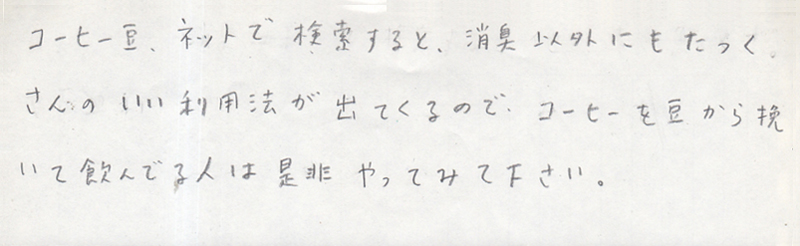 コーヒー豆、ネットで検索すると、消臭以外にもたっく
さんのいい利用法が出てくるので、コーヒーを豆から挽
いて飲んでる人は是非やってみて下さい。